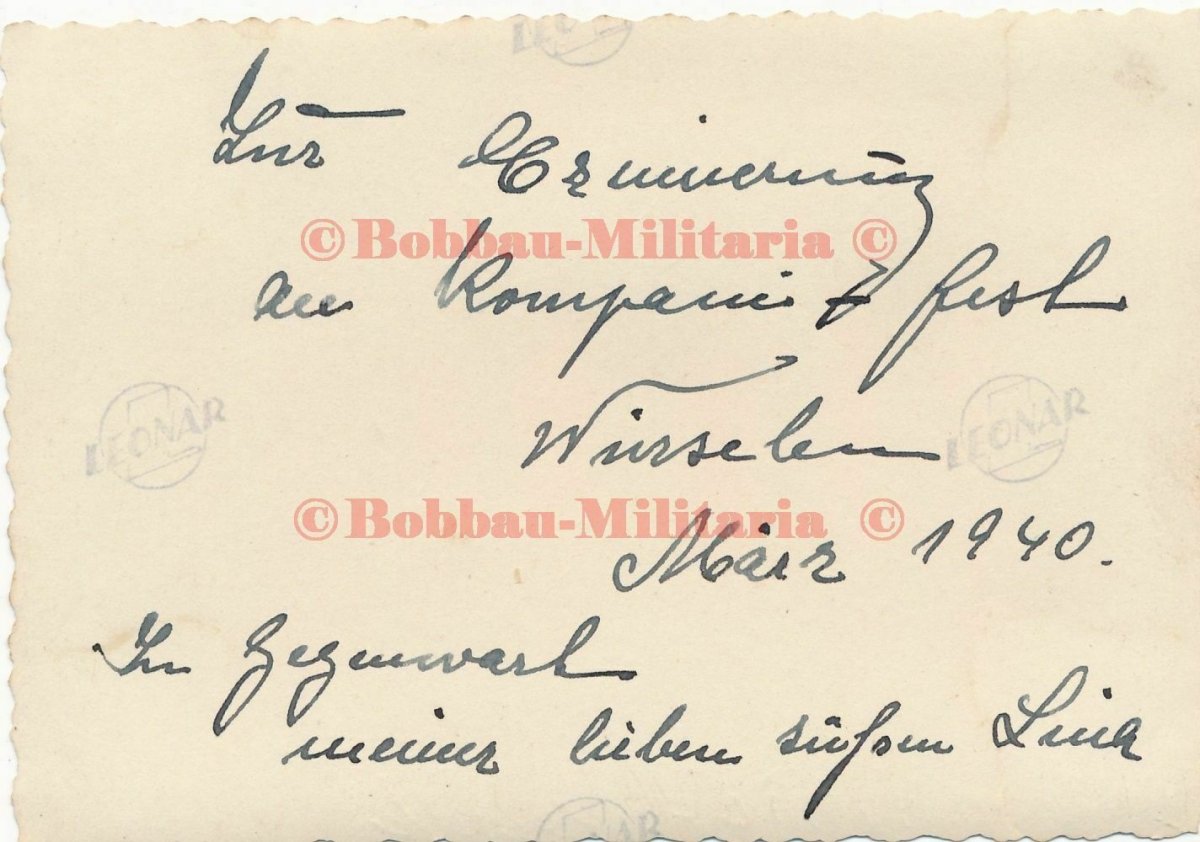 LEONAR
Zur Erinnerung
©Bobbau-Militaria ©
an Kompanie fest
LEONAR
LEONAR
Würselen
©Bobbau-Militaria ©
März 1940.
In Gegenwart
meiner lieben süßen Lina
LEONAR